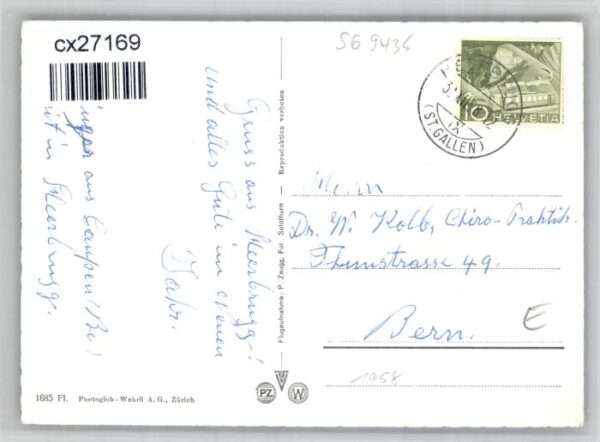 cx27169
SG 9436
10 HELVETIA
(ST. GALLEN)
Gruss aus Heerbrugg!
und alles Gute im neuen
Jahr.
aus Laupen/Be!
in Heerbrugg.
Flugaufnahme: P. Zaugg, Ful. Solothurn Reproduktion verboten
Herrn
Dr. W. Kolb, Chiro-Praktik.
Thunstrasse 49.
Bern.
E
1958
1685 Fl. Photoglob-Wehrli A. G., Zürich
PZ W